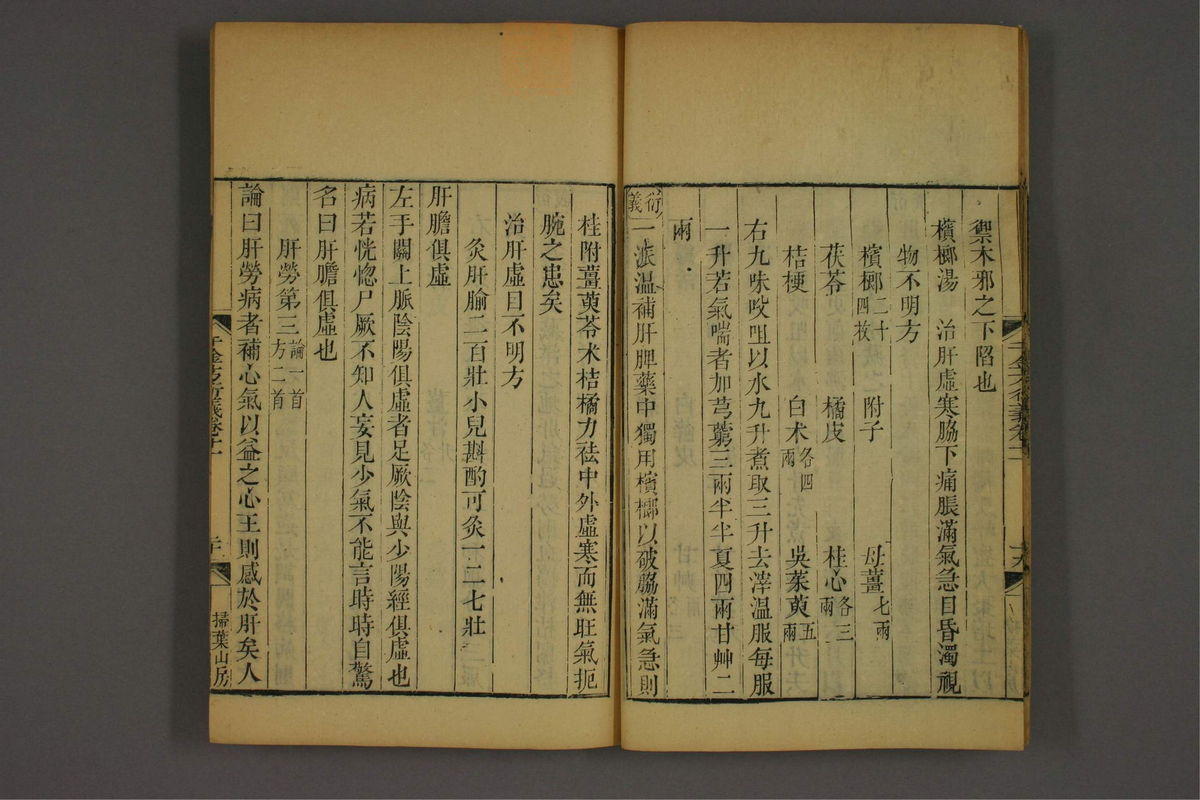 禦木邪之下陷也
檳榔湯　治肝虛寒脇下痛脹滿氣急目昏濁視
物不明方
檳榔二十四枚　附子　母薑七兩
茯苓　橘皮　桂心各三兩
桔梗　白朮各四兩　吳茱萸五兩
右九味㕮咀以水九升煮取三升去滓溫服每服
一升若氣喘者加芎藭三兩半半夏四兩甘艸二
兩
衍義一派溫補肝脾藥中獨用檳榔以破脇滿氣急則
桂附薑萸苓朮桔橘力祛中外虛寒而無旺氣扼
腕之患矣
治肝虛目不明方
灸肝腧二百壯小兒斟酌可灸一二七壯
肝膽俱虛
左手關上脈陰陽俱虛者足厥陰與少陽經俱虛也
病若恍惚尸厥不知人妄見少氣不能言時時自驚
名曰肝膽俱虛也
肝勞第三論一首方二首
論曰肝勞病者補心氣以益之心王則感於肝矣人
掃葉山房